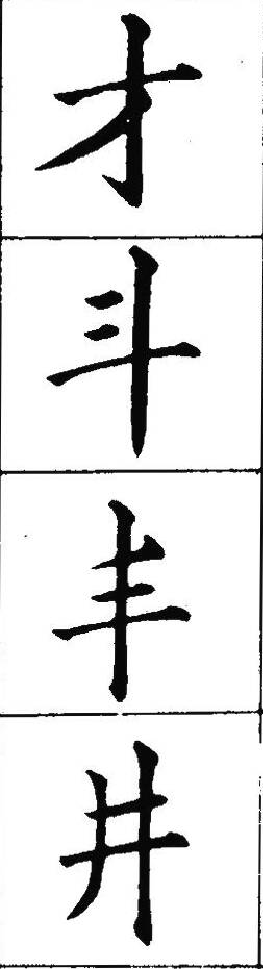 才
斗
丰
井